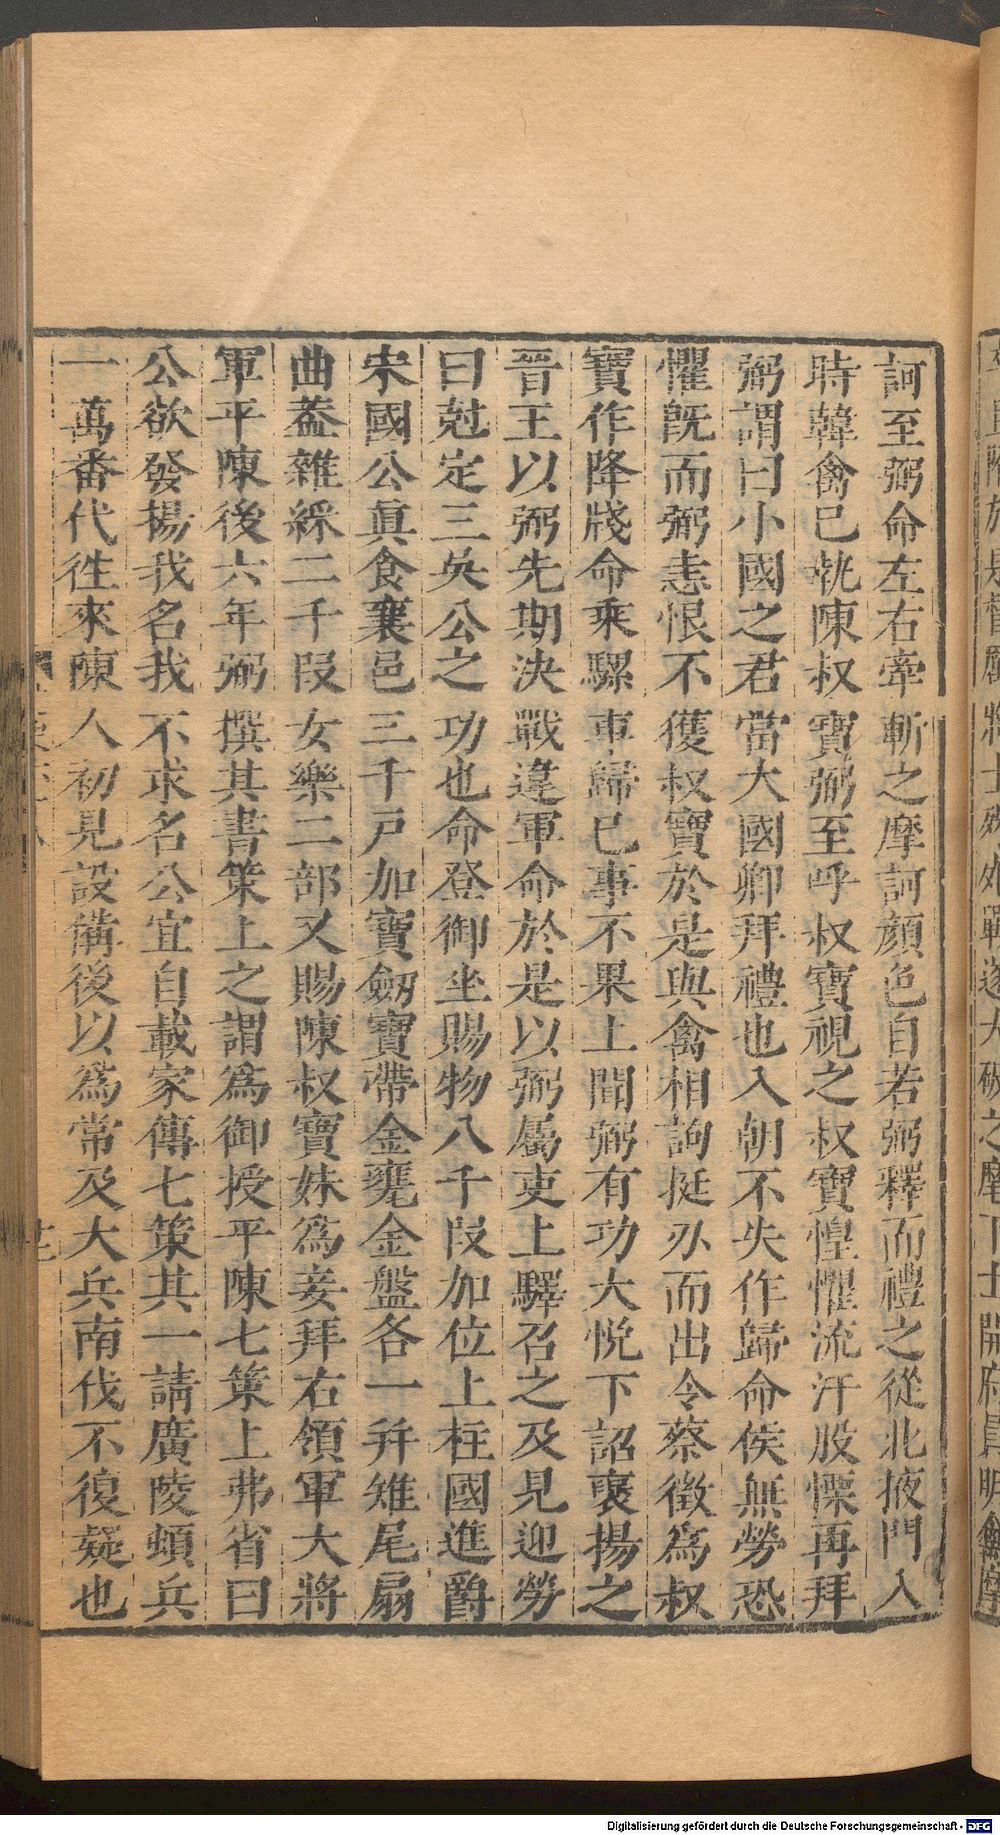 訶至弼命左右牽斬之摩訶顏色自若弼釋而禮之從北掖門入
時韓禽已執陳叔寶弼至呼叔寶視之叔寶惶懼流汗股慄再拜
弼謂曰小國之君當大國卿拜禮也入朝不失作歸命侯無勞恐
懼旣而弼恚恨不獲叔寶於是與禽相訽挺刃而出令蔡徵爲叔
寶作降牋命乘騾車歸已事不果上聞弼有功大悅下詔襃揚之
晉王以弼先期決戰違軍命於是以弼屬吏上驛召之及見迎勞
曰尅定三吳公之功也命登御坐賜物八千段加位上柱國進爵
宋國公眞食襄邑三千戸加寶劔寶帶金甕金盤各一并雉尾扇
曲葢雜綵二千段女樂二部又賜陳叔寶妹爲妾拜右領軍大將
軍平陳後六年弼撰其書策上之謂爲御授平陳七策上弗省曰
公欲發揚我名我不求名公宜自載家傳七策其一請廣陵頓兵
一萬番代徃來陳人初見設備後以爲常及大兵南伐不復疑也
Digitalisierung gefördert durch die Deutsche Forschungsgemeinschaft - DFG